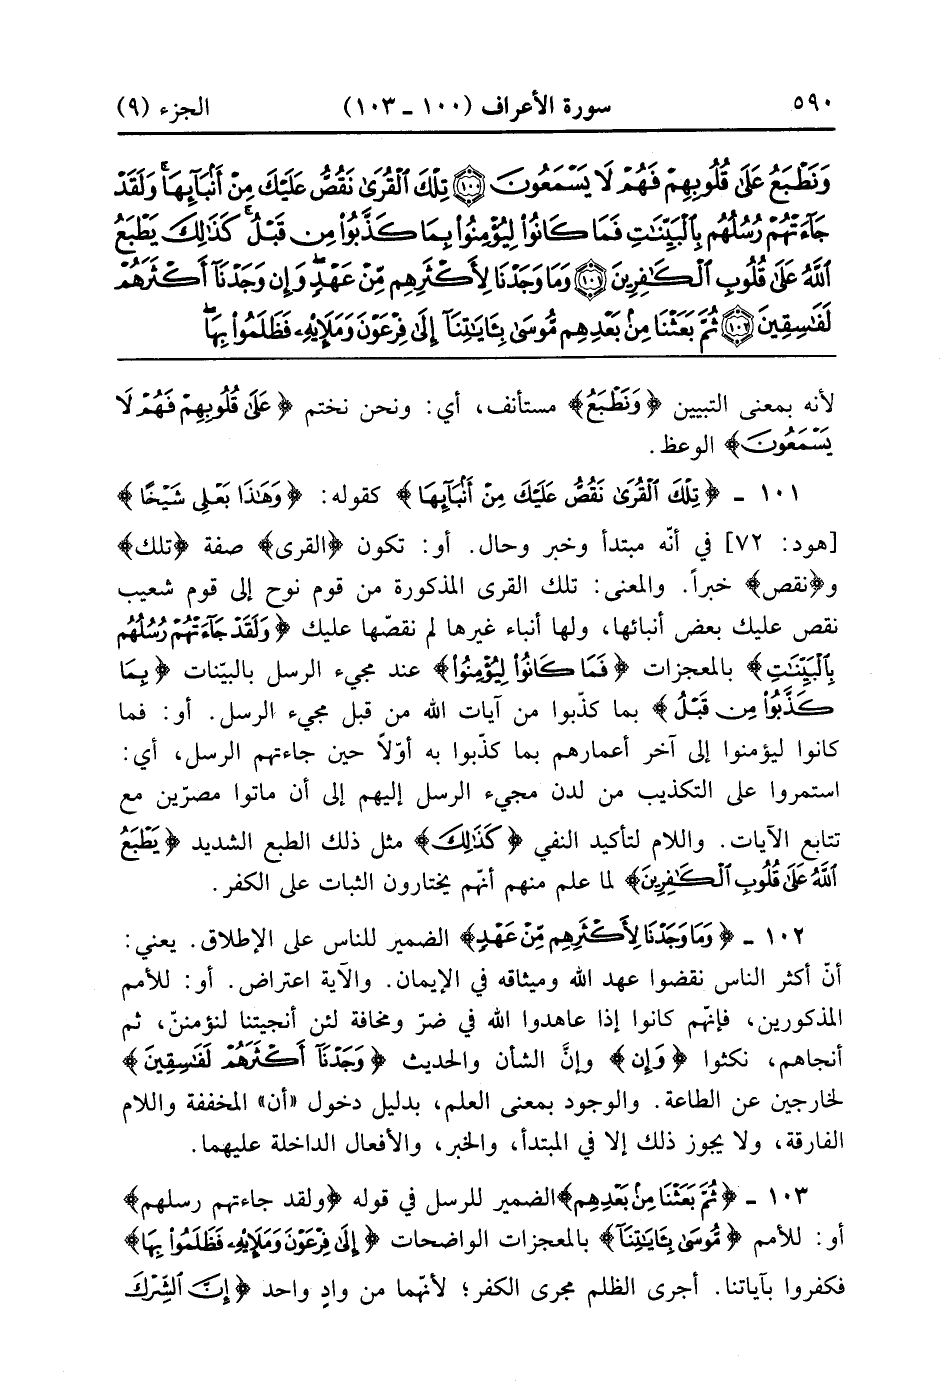 ٥٩٠ سورة الأعراف (١٠٠ ـ ١٠٣) الجزء (٩)
وَنَطْبَعُ عَلَىٰ قُلُوبِهِمْ فَهُمْ لَا يَسْمَعُونَ ﴿١٠٠﴾ تِلْكَ ٱلْقُرَىٰ نَقُصُّ عَلَيْكَ مِنْ أَنۢبَآئِهَا ۚ وَلَقَدْ
جَآءَتْهُمْ رُسُلُهُم بِٱلْبَيِّنَٰتِ فَمَا كَانُوا۟ لِيُؤْمِنُوا۟ بِمَا كَذَّبُوا۟ مِن قَبْلُ ۚ كَذَٰلِكَ يَطْبَعُ
ٱللَّهُ عَلَىٰ قُلُوبِ ٱلْكَٰفِرِينَ ﴿١٠١﴾ وَمَا وَجَدْنَا لِأَكْثَرِهِم مِّنْ عَهْدٍ ۖ وَإِن وَجَدْنَآ أَكْثَرَهُمْ
لَفَٰسِقِينَ ﴿١٠٢﴾ ثُمَّ بَعَثْنَا مِنۢ بَعْدِهِم مُّوسَىٰ بِـَٔايَٰتِنَآ إِلَىٰ فِرْعَوْنَ وَمَلَإِي۟هِۦ فَظَلَمُوا۟ بِهَا ۖ
لأنه بمعنى التبيين ﴿وَنَطْبَعُ﴾ مستأنف، أي: ونحن نختم ﴿عَلَىٰ قُلُوبِهِمْ فَهُمْ لَا
يَسْمَعُونَ﴾ الوعظ.
١٠١ ـ ﴿تِلْكَ ٱلْقُرَىٰ نَقُصُّ عَلَيْكَ مِنْ أَنۢبَآئِهَا﴾ كقوله: ﴿وَهَٰذَا بَعْلِى شَيْخًا﴾
[هود: ٧٢] في أنّه مبتدأ وخبر وحال. أو: تكون ﴿القرى﴾ صفة ﴿تلك﴾
و﴿نقص﴾ خبراً. والمعنى: تلك القرى المذكورة من قوم نوح إلى قوم شعيب
نقص عليك بعض أنبائها، ولها أنباء غيرها لم نقصّها عليك ﴿وَلَقَدْ جَآءَتْهُمْ رُسُلُهُم
بِٱلْبَيِّنَٰتِ﴾ بالمعجزات ﴿فَمَا كَانُوا۟ لِيُؤْمِنُوا۟﴾ عند مجيء الرسل بالبيّنات ﴿بِمَا
كَذَّبُوا۟ مِن قَبْلُ﴾ بما كذّبوا من آيات الله من قبل مجيء الرسل. أو: فما
كانوا ليؤمنوا إلى آخر أعمارهم بما كذّبوا به أوّلاً حين جاءتهم الرسل، أي:
استمروا على التكذيب من لدن مجيء الرسل إليهم إلى أن ماتوا مصرّين مع
تتابع الآيات. واللام لتأكيد النفي ﴿كَذَٰلِكَ﴾ مثل ذلك الطبع الشديد ﴿يَطْبَعُ
ٱللَّهُ عَلَىٰ قُلُوبِ ٱلْكَٰفِرِينَ﴾ لما علم منهم أنّهم يختارون الثبات على الكفر.
١٠٢ ـ ﴿وَمَا وَجَدْنَا لِأَكْثَرِهِم مِّنْ عَهْدٍ﴾ الضمير للناس على الإطلاق. يعني:
أنّ أكثر الناس نقضوا عهد الله وميثاقه في الإيمان. والآية اعتراض. أو: للأمم
المذكورين، فإنّهم كانوا إذا عاهدوا الله في ضرّ ومخافة لئن أنجيتنا لنؤمننّ، ثم
أنجاهم، نكثوا ﴿وَإِن﴾ وإنَّ الشأن والحديث ﴿وَجَدْنَآ أَكْثَرَهُمْ لَفَٰسِقِينَ﴾
لخارجين عن الطاعة. والوجود بمعنى العلم، بدليل دخول «أن» المخففة واللام
الفارقة، ولا يجوز ذلك إلا في المبتدأ، والخبر، والأفعال الداخلة عليهما.
١٠٣ ـ ﴿ثُمَّ بَعَثْنَا مِنۢ بَعْدِهِم﴾ الضمير للرسل في قوله ﴿ولقد جاءتهم رسلهم﴾
أو: للأمم ﴿مُّوسَىٰ بِـَٔايَٰتِنَآ﴾ بالمعجزات الواضحات ﴿إِلَىٰ فِرْعَوْنَ وَمَلَإِي۟هِۦ فَظَلَمُوا۟ بِهَا﴾
فكفروا بآياتنا. أجرى الظلم مجرى الكفر؛ لأنّهما من وادٍ واحد ﴿إِنَّ ٱلشِّرْكَ